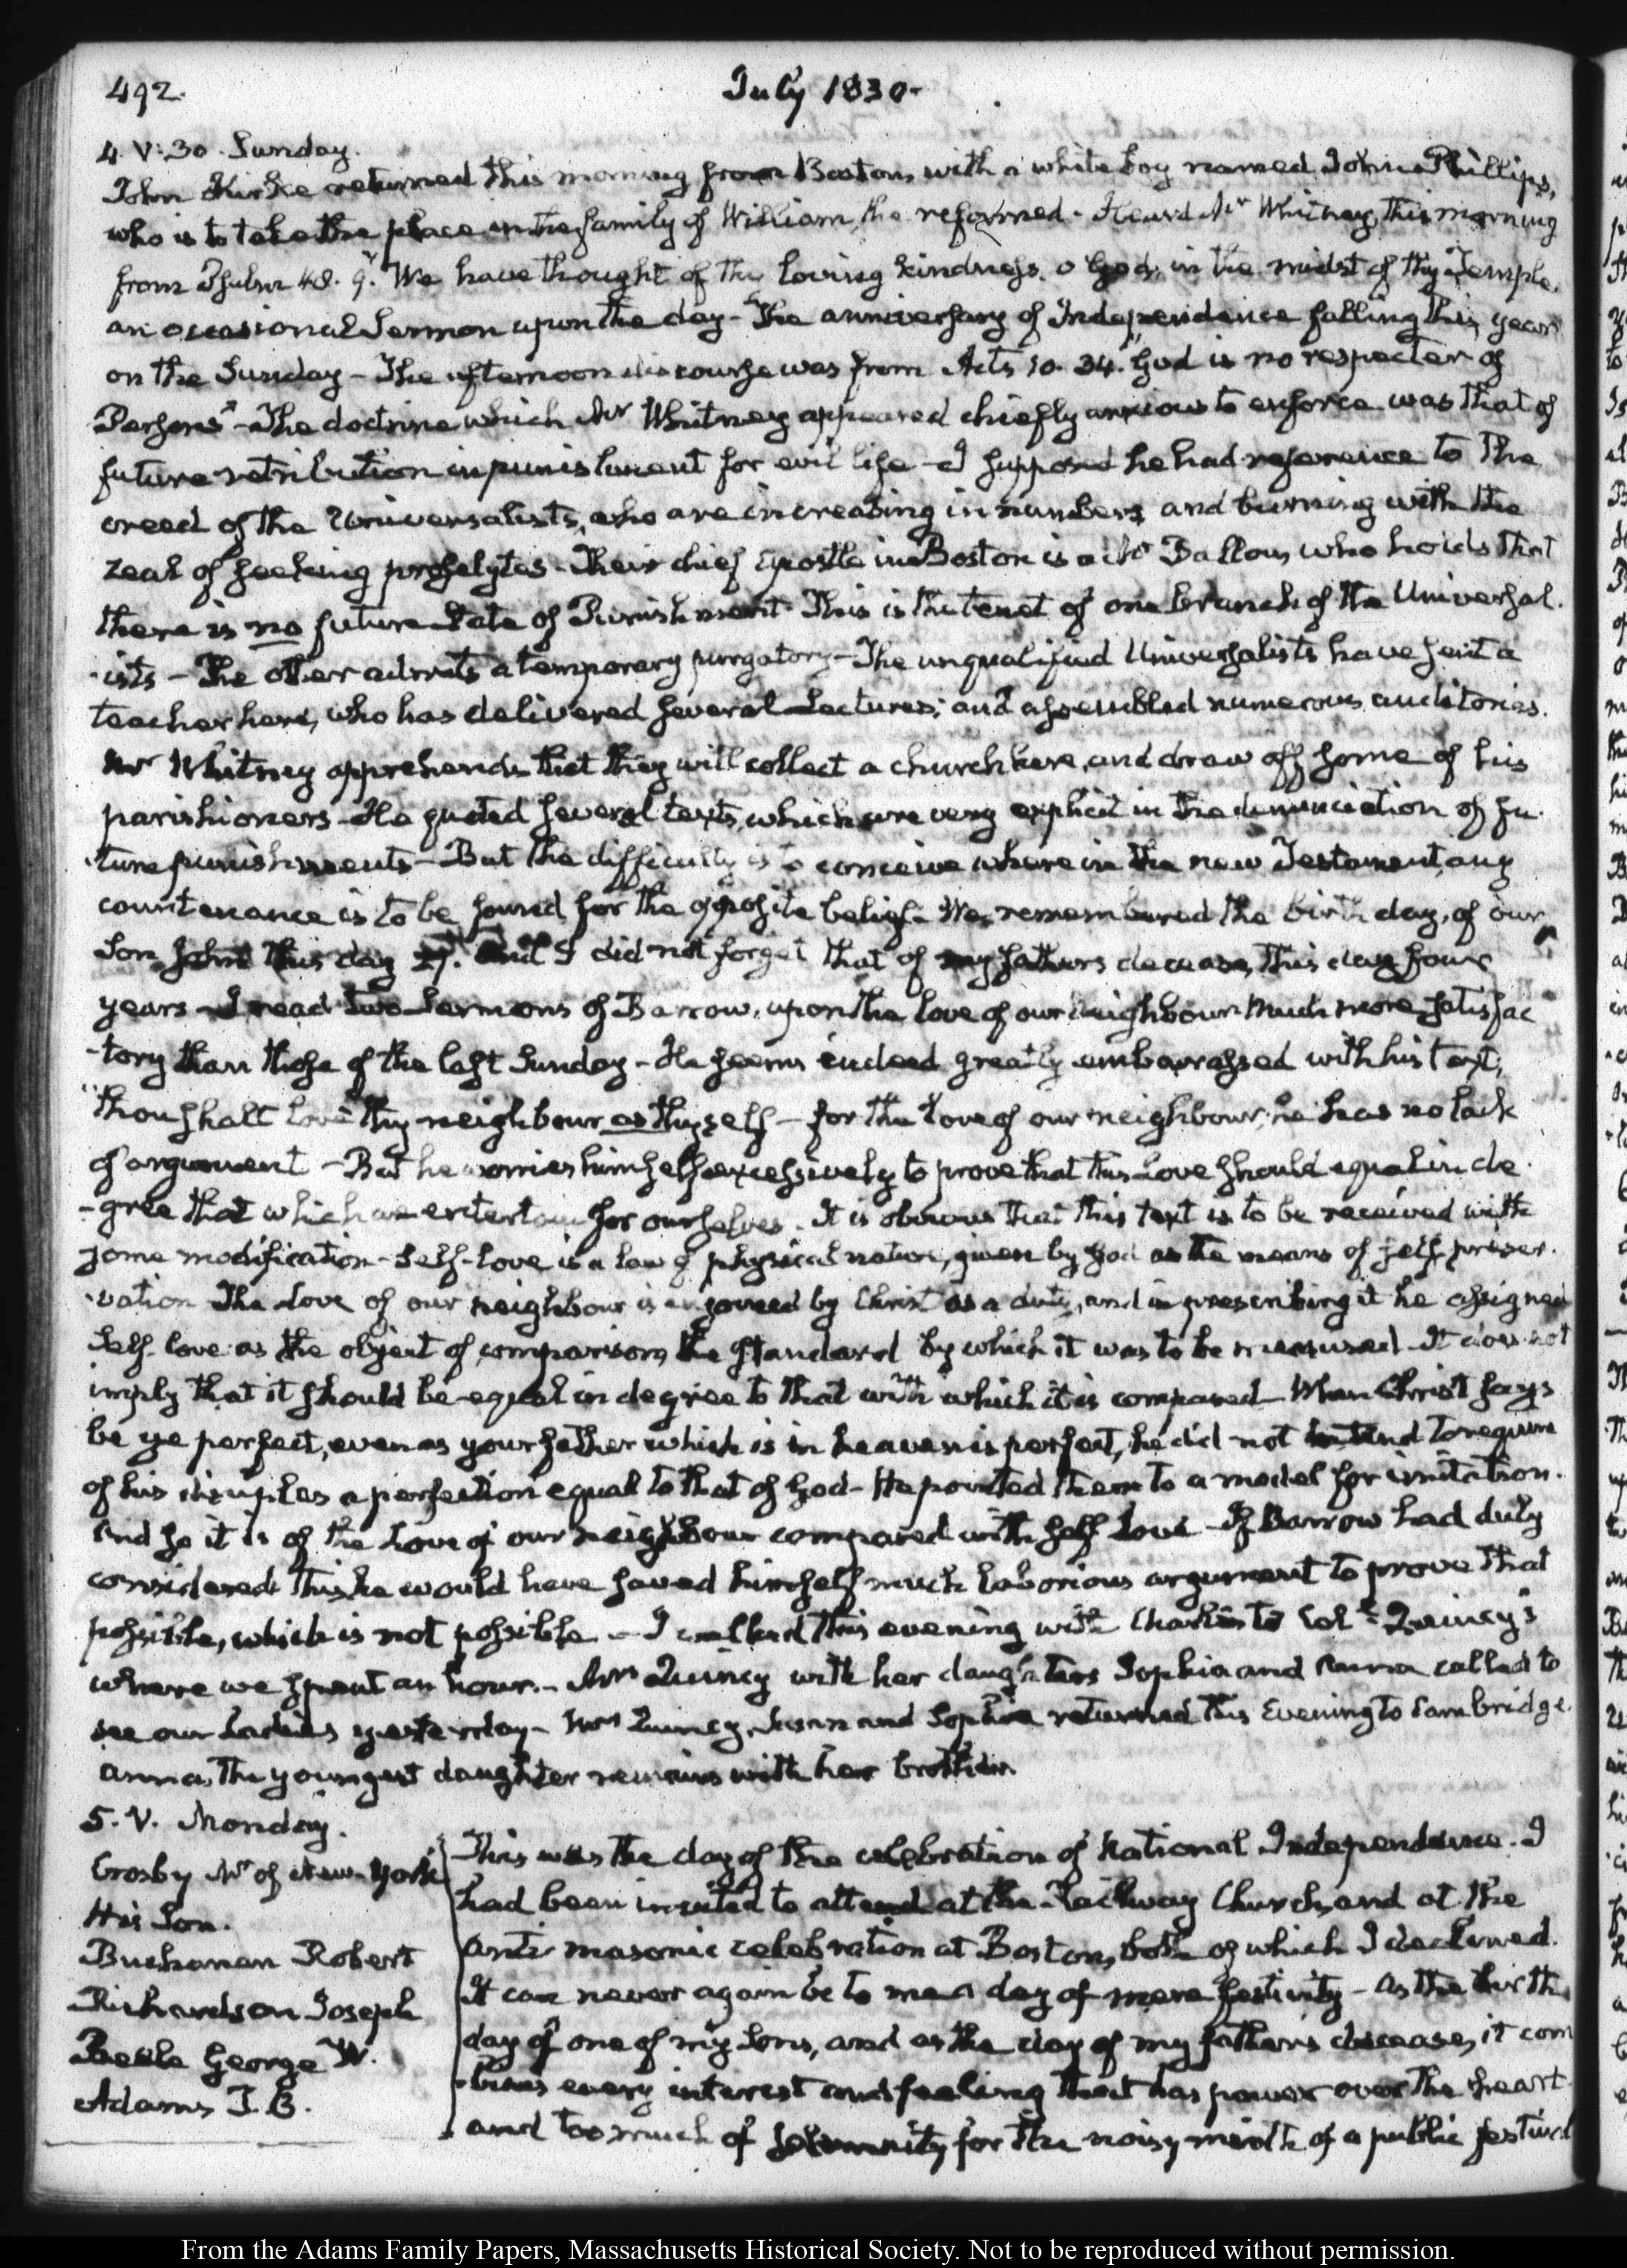 492.
July 1830.
4. V:30. Sunday.
John Kirke returned this morning from Boston, with a white boy named John Phillips,
who is to take the place in the family of William, the reformed. Heard Mr Whitney, this morning
from Psalm 48. 9. "We have thought of thy loving kindness, o God, in the midst of thy Temple.
an occasional Sermon upon the day - The anniversary of Independence falling this year
on the Sunday - The afternoon discourse was from Acts 10. 34. "God is no respecter of
Persons" - The doctrine which Mr Whitney appeared chiefly anxious to enforce was that of
future retribution in punishment for evil life - I supposed he had reference to the
creed of the Universalists, who are increasing in numbers and burning with the
zeal of seeking proselytes - Their chief Apostle in Boston is a Mr Ballou, who holds that
there is no future State of Punishment. This is the tenet of one branch of the Universal.
-ists - The other admits a temporary purgatory - The unqualified Universalists have sent a
teacher here, who has delivered several Lectures; and assembled numerous auditories.
Mr Whitney apprehends that they will collect a church here, and draw off some of his
parishioners - He quoted several texts, which are very explicit in the denunciation of fu-
-ture punishments - But the difficulty is to conceive where in the new Testament, any
countenance is to be found for the opposite belief - We remembered the birth day, of our
Son John this day 27. And I did not forget that of my fathers decease, this day four
years - I read two Sermons of Barrow, upon the love of our neighbour much more satisfac
-tory than those of the last Sunday - He seems indeed greatly embarrassed with his text,
"thou shalt love thy neighbour as thyself - for the love of our neighbour, he has no lack
of argument - But he worries himself excessively to prove that this Love should equal in de-
-gree that which we entertain for ourselves. It is obvious that this text is to be received with
some modification - Self-love is a law of physical nature, given by God as the means of self-preser-
-vation The Love of our neighbour is enjoined by Christ as a duty, and in prescribing it he assigned
Self-love as the object of comparison, the Standard by which it was to be measured - It does not
imply that it should be equal in degree to that with which it is compared - When Christ says
be ye perfect, even as your father which is in heaven is perfect, he did not intend to require
of his disciples a perfection equal to that of God - He pointed them to a model for imitation.
And so it is of the Love of our neighbour compared with self Love - If Barrow had duly
considered this he would have saved himself much laborious argument to prove that
possible, which is not possible - I walked this evening with Charles to Col. Quincy's
where we spent an hour. - Mrs Quincy with her daughters Sophia and Anna called to
see our Ladies yesterday - Mrs Quincy, Susan and Sophia returned this Evening to Cambridge.
Anna, the youngest daughter remains with her brother
5. V. Monday.
Crosby Mr of New-York
His Son.
Buchanan Robert
Richardson Joseph
Beale George W.
Adams T. B.
This was the day of the celebration of National Independence. I
had been invited to attend at the Railway Church, and at the
anti-masonic celebration at Boston, both of which I declined.
It can never again be to me a day of mere festivity - As the birth
day of one of my Sons, and as the day of my father's decease, it com
-bines every interest and feeling that has power over the heart
and too much of solemnity for the noisy mirth of a public festival
From the Adams Family Papers, Massachusetts Historical Society. Not to be reproduced without permission.